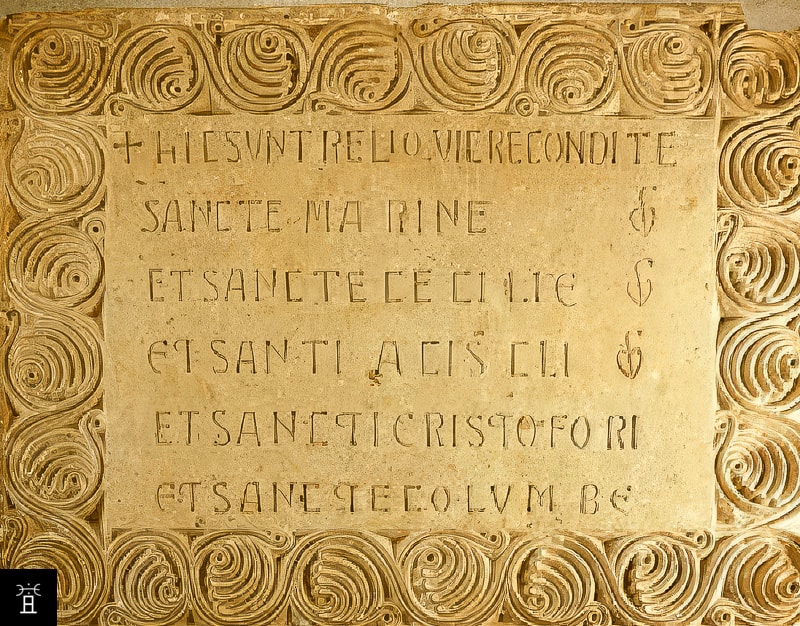 + HIC SVNT RELIQVIE RECONDITE
SANCTE MARINE
ET SANCTE CECILIE
ET SANTI ACISCLI
ET SANCTI CRISTOFORI
ET SANCTE COLVMBE